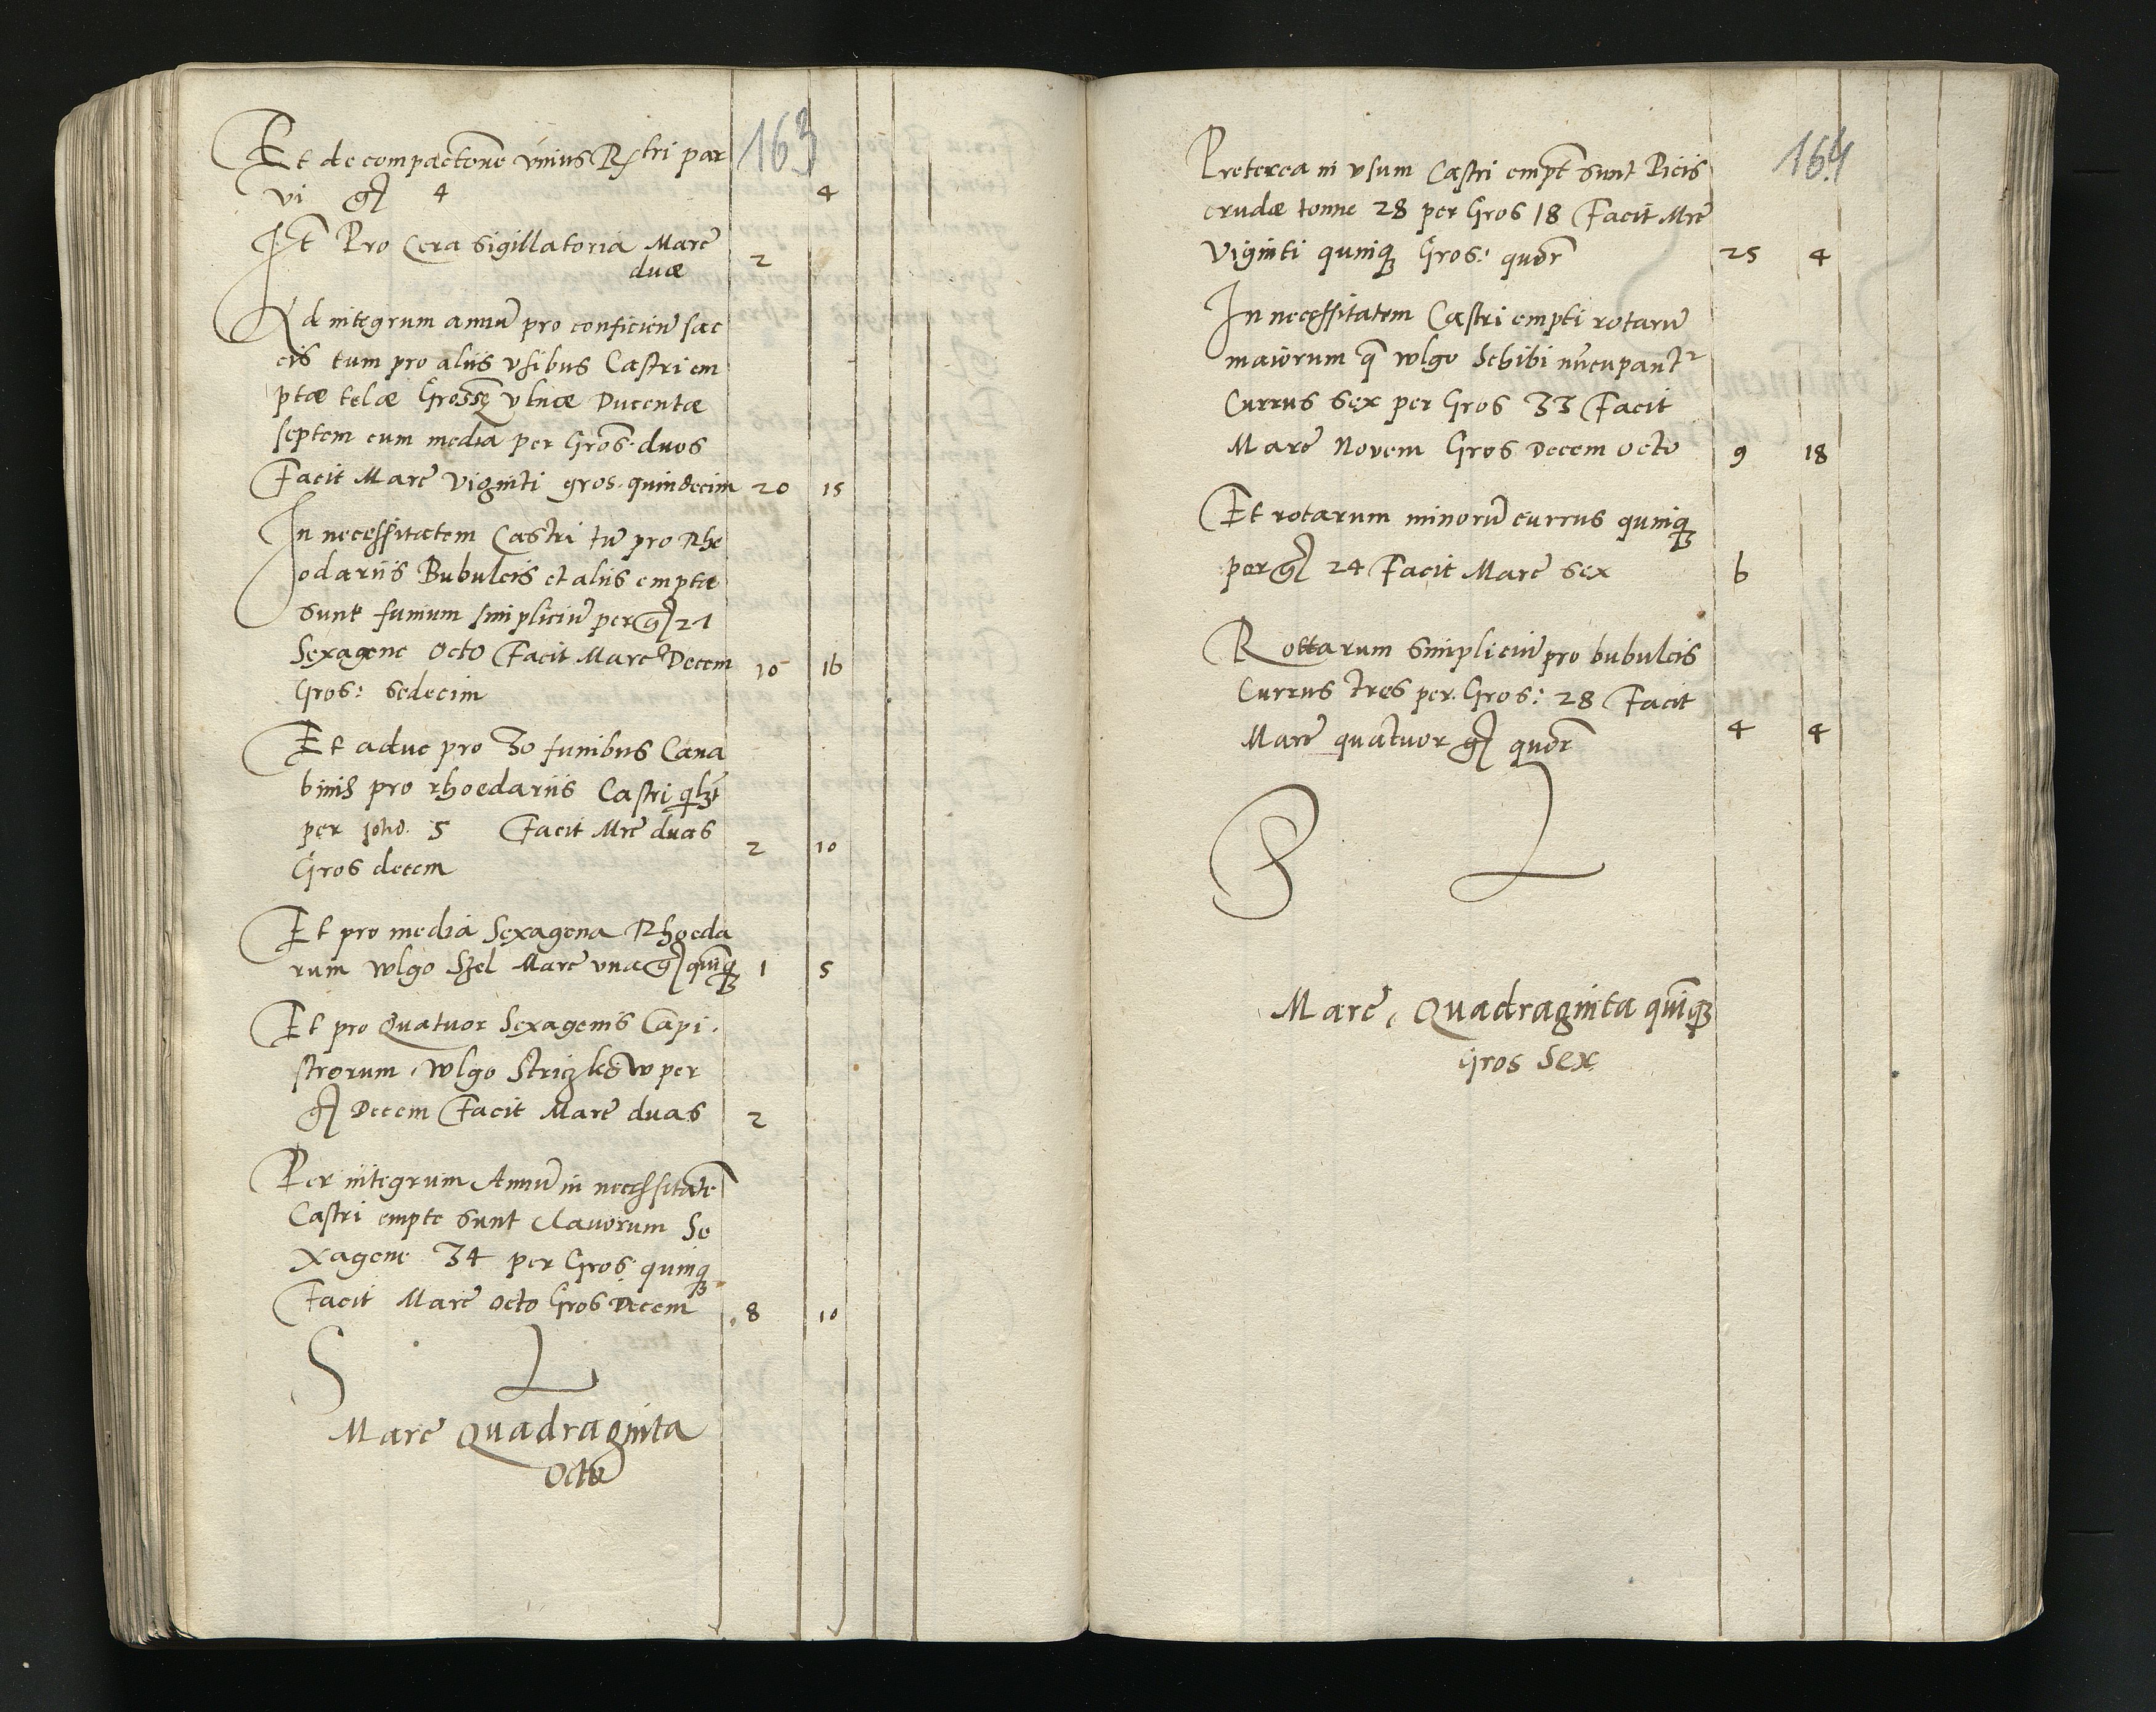 163
Et de compactone vnius Rstri par
vi gl 4 4
It Pro Cera sigillatoria Marc
duæ 2
Ad integrum annu pro conficien sac
cis tum pro aliis vsibus Castri em
ptæ telæ Grosse vlnæ Ducentæ
septem cum media per Gros. duos
Facit Marc Viginti gros. quindecim 20 15
In necessitatem Castri tu pro Rhe
odariis Bubulcis et aliis emptæ
sunt funium simpliciu per gl 21
Sexagene Octo Facit Marc Decem 10 16
Gros: sedecim
Et aduc pro 30 funibus Cana
binis pro rhoedariis Castri
per 5 Facit Mrc duas
Gros decem 2 10
Et pro media Sexagena Rhoeda
rum wlgo Szel Marc vna gl quinq 1 5
Et pro Quatuor Sexagenis Capi.
strorum, Wlgo Striczkow per
gl Decem Facit Marc duas 2
Per integrum Annu in necessitate
Castri empte sunt Clauorum Se
xagene 34 per Gros. quinq
Facit Marc octo Gros Decem 8 10
S L
Marc Quadraginta
Octo
164
Preterea in vsum Castri empt sunt Picis
crudæ tonne 28 per Gros 18 Facit Mrc
Viginti quinq Gros: quor 25 4
In necessitatem Castri empti rotaru
maiorum q wlgo Schibi nucupant
Currus sex per Gros 33 Facit
Marc Novem Gros Decem octo 9 18
Et rotarum minoru currus quinq
per gl 24 Facit Marc sex 6
Rottarum simpliciu pro bubulcis
Currus tres per. Gros: 28 Facit
Marc quatuor gl quor 4 4
P L
Marc, Quadraginta quinq
Gros Sex